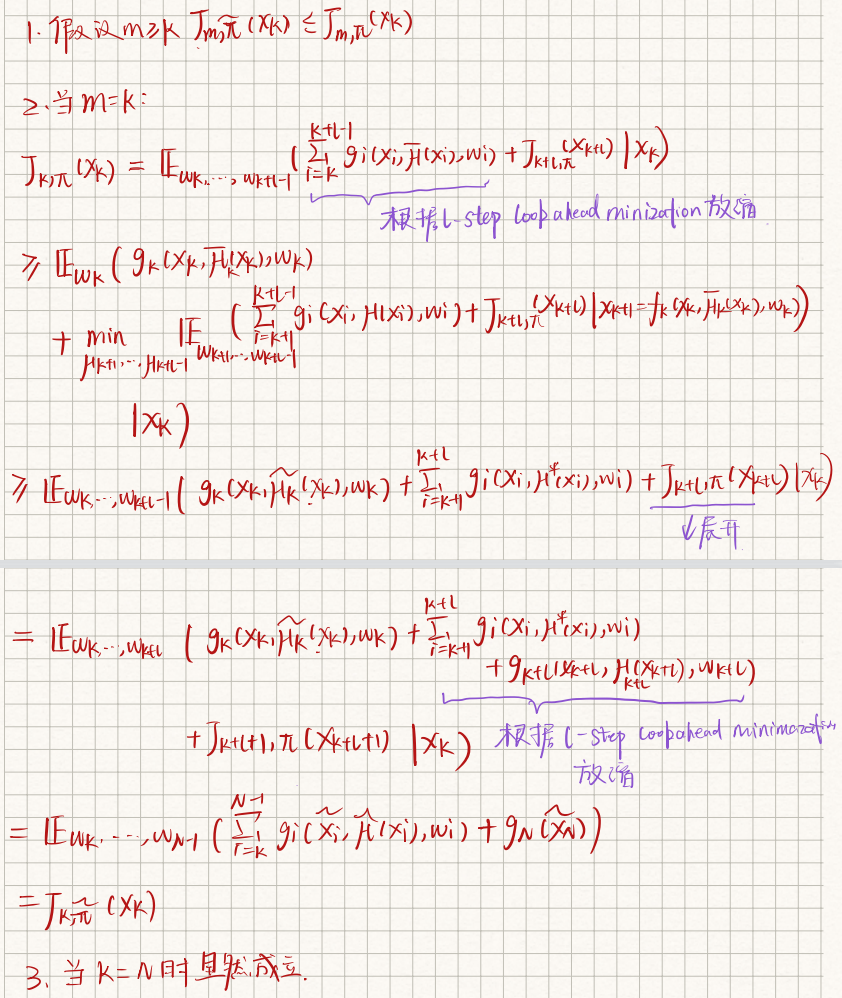 1. 假设 m≥k J_{m,π̃}(x_k) ≤ J_{m,π}(x_k)
2. 当 m=k:
J_{k,π}(x_k) = 𝔼_{w_k,…,w_{k+l-1}} ( ∑_{i=k}^{k+l-1} g_i(x_i, μ̄(x_i), w_i) + J_{k+l,π}(x_{k+l}) | x_k )
根据 l-step loop ahead minization 放缩
≥ 𝔼_{w_k} ( g_k(x_k, μ̄_k(x_k), w_k)
+ min_{μ_{k+1},…,μ_{k+l-1}} 𝔼_{w_{k+1},…,w_{k+l-1}} ( ∑_{i=k+1}^{k+l-1} g_i(x_i, μ(x_i), w_i) + J_{k+l,π}(x_{k+l}) | x_{k+1} = f_k(x_k, μ̄_k(x_k), w_k) )
| x_k )
≥ 𝔼_{w_k,…,w_{k+l-1}} ( g_k(x_k, μ̃_k(x_k), w_k) + ∑_{i=k+1}^{k+l} g_i(x_i, μ*(x_i), w_i) + J_{k+l,π}(x_{k+l}) | x_k )
↓展开
= 𝔼_{w_k,…,w_{k+l}} ( g_k(x_k, μ̃_k(x_k), w_k) + ∑_{i=k+1}^{k+l} g_i(x_i, μ*(x_i), w_i)
+ g_{k+l}(x_{k+l}, μ_{k+l}(x_{k+l}), w_{k+l})
+ J_{k+l+1,π}(x_{k+l+1}) | x_k )
根据 l-step loopahead minimization
放缩
= 𝔼_{w_k,…,w_{N-1}} ( ∑_{i=k}^{N-1} g_i(x̃_i, μ̃(x_i), w_i) + g_N(x̃_N) )
= J_{k,π̃}(x_k)
3. 当 k=N 时显然成立.